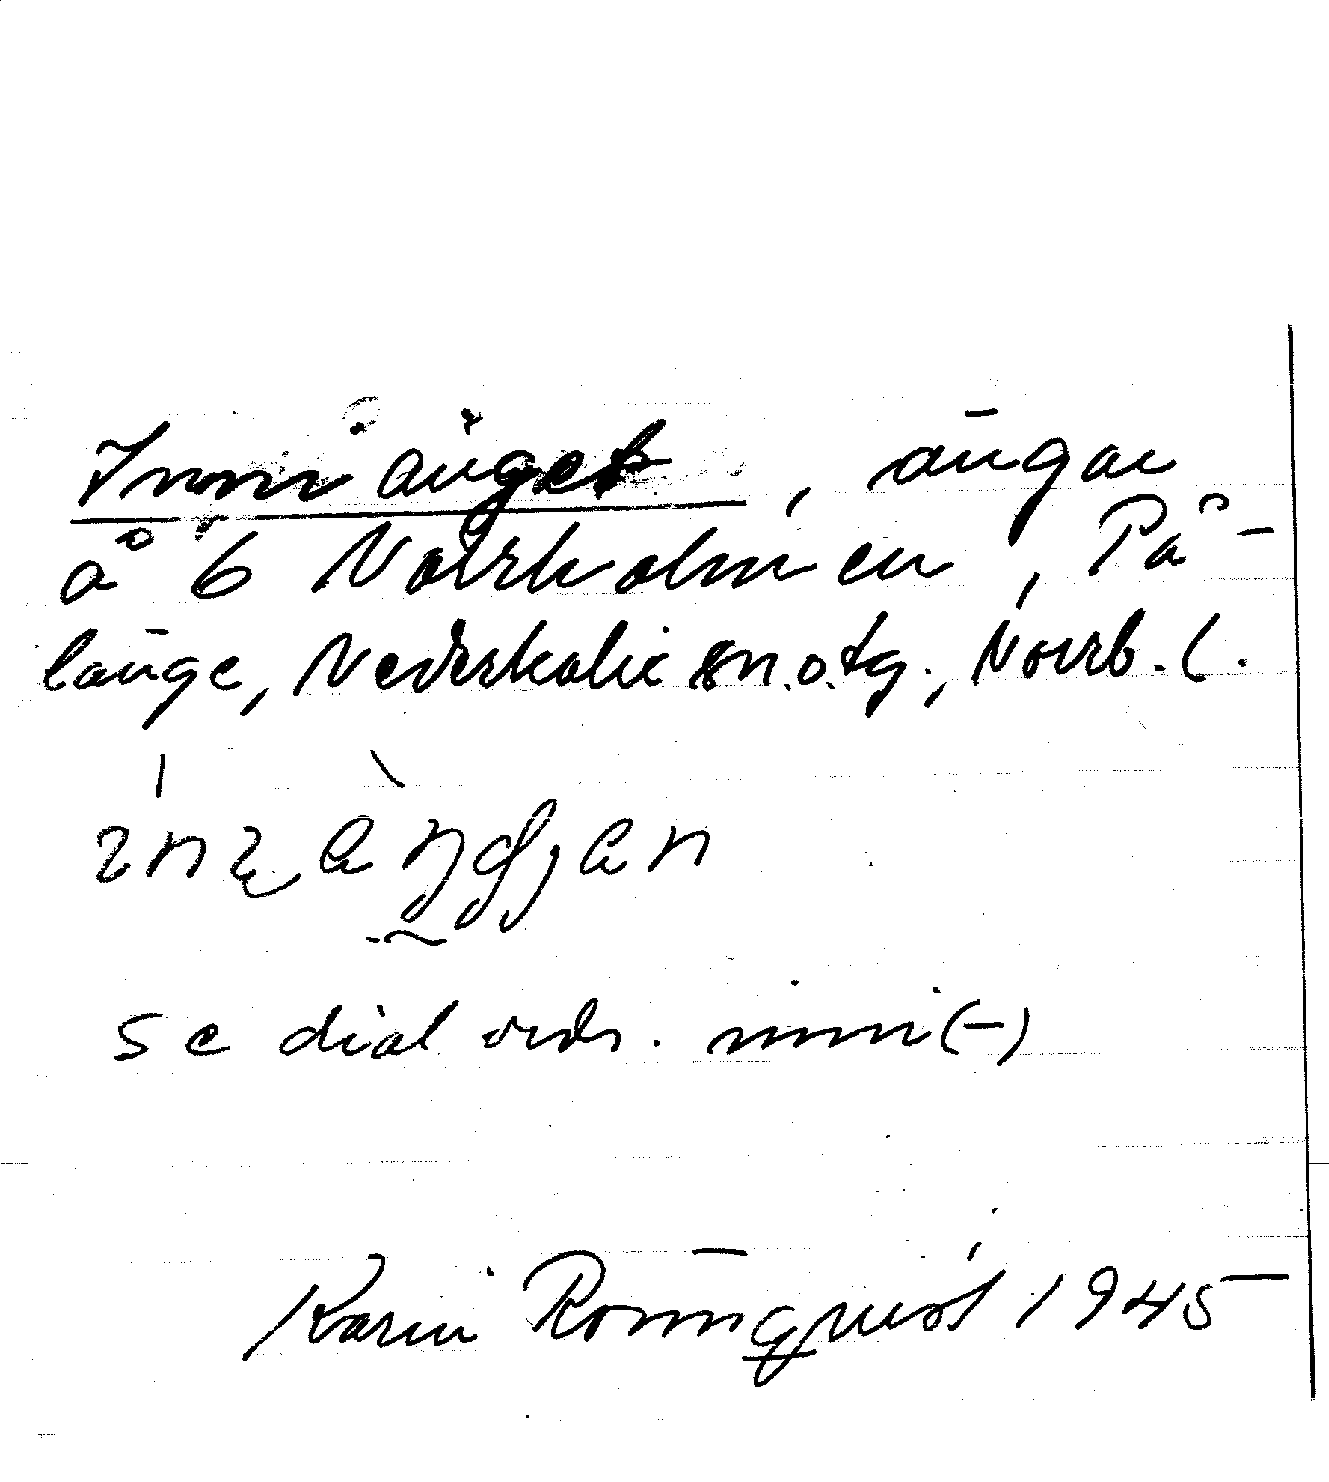 Inni änget, ängar
å 6 Norrholmen, På-
länge, Nederkalix sn. o. tg., Norrb. l.
se dial ordr. inni(-)
Karin Rönnquist 1945